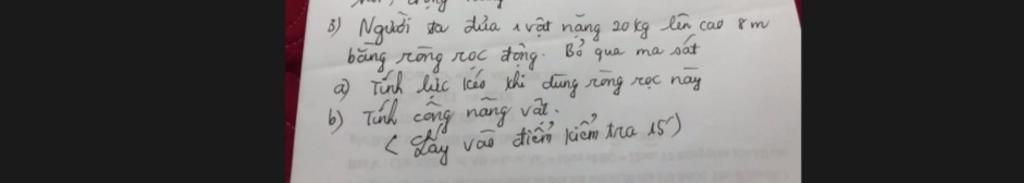 3) Người ta đưa 1 vật nặng 20kg lên cao 8m
bằng ròng rọc động. Bỏ qua ma sát
a) Tính lực kéo khi dùng ròng rọc này
b) Tính công nâng vật.
( Lấy vào điểm kiểm tra 15')